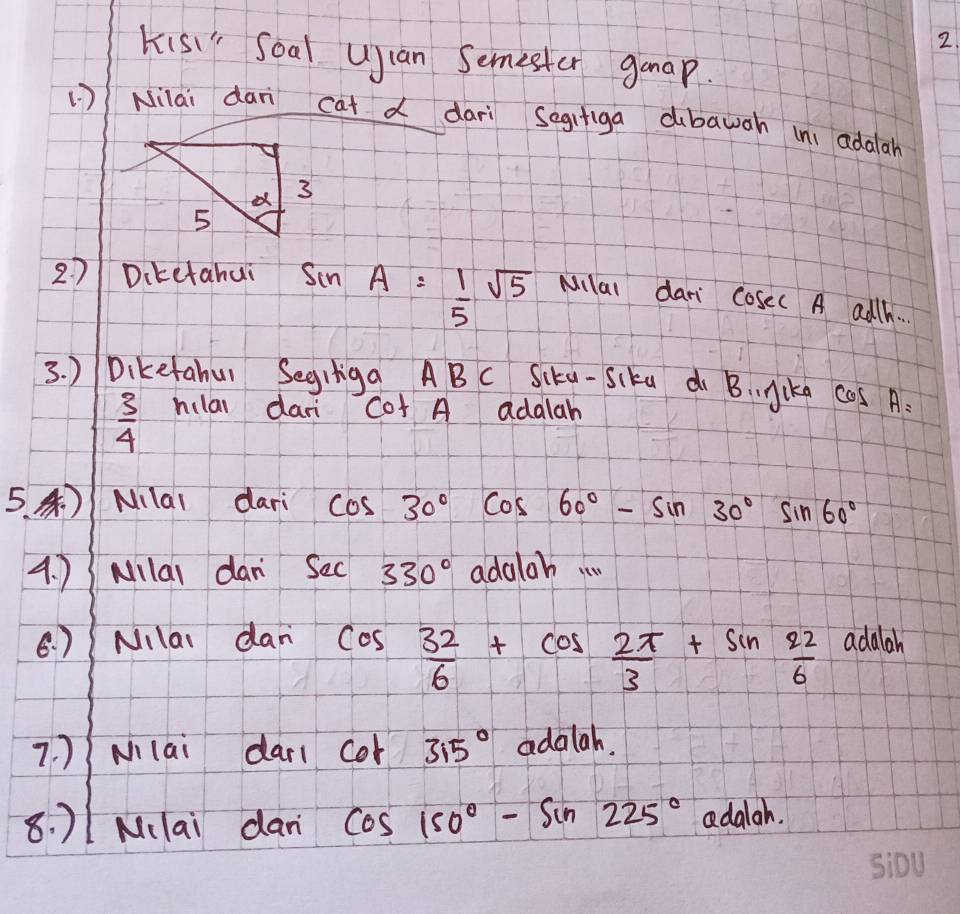 Kisi" Soal Ujian Semester genap.
1.) Nilai dari cat α dari Segitiga dibawah ini adalah
α 3
5
2.) Diketahui Sin A = 1/5 √5 Nilai dari cosec A adlh...
3.) Diketahui Segitiga ABC Siku-Siku di B..jika cos A=
3/4 nilai dari Cot A adalah
5.) Nilai dari cos 30° cos 60° - sin 30° sin 60°
4.) Nilai dari Sec 330° adalah ....
6.) Nilai dari cos 32/6 + cos 2π/3 + sin 22/6 adalah
7.) Nilai dari cot 315° adalah.
8.) Nilai dari cos 150° - Sin 225° adalah.
SiDU
2.